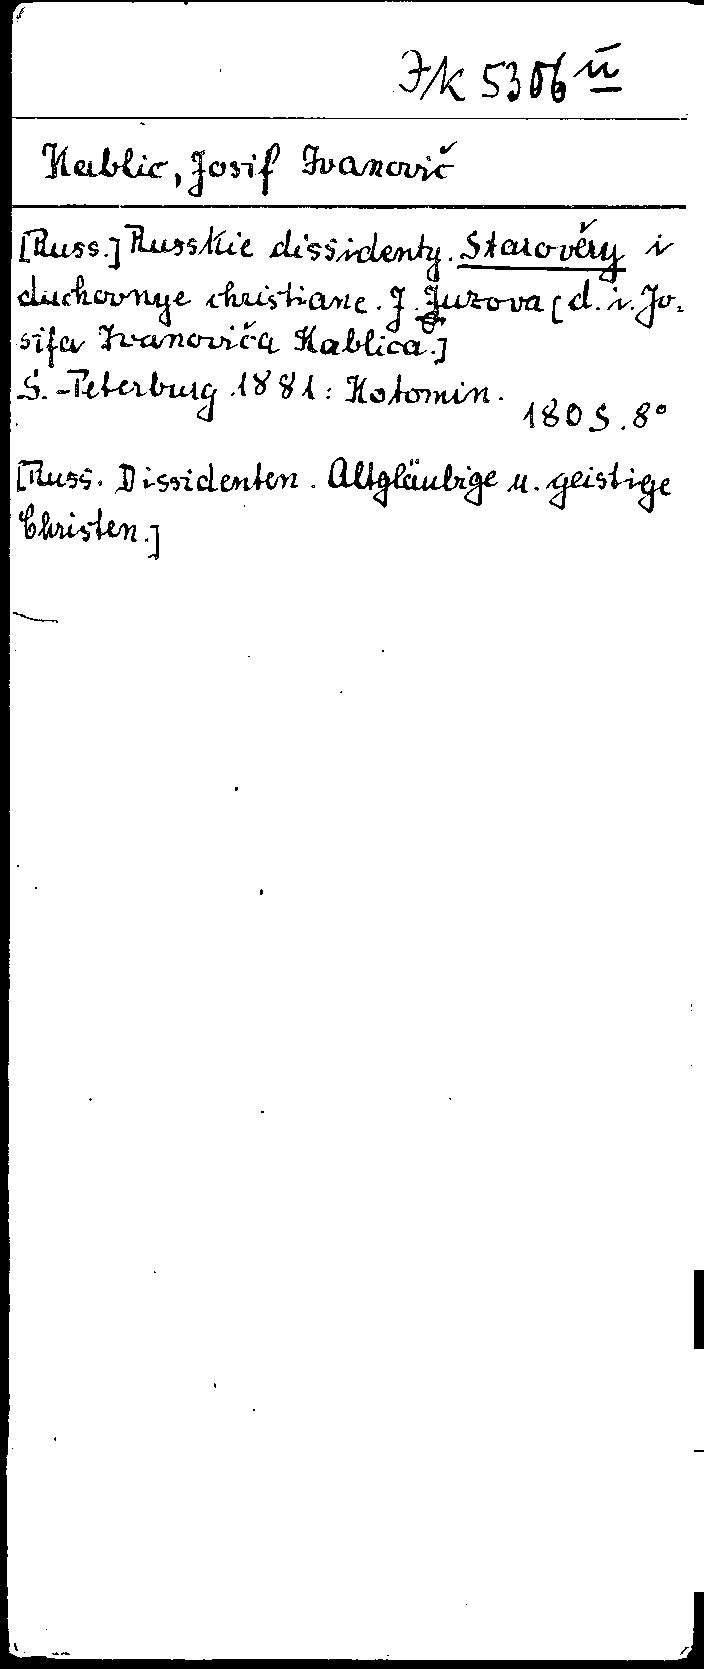 Jk 5306 ü
Kablic, Josif Ivanovič
[Russ.] Russkie dissidenty. Starověry i
duchovnye christiane. J. Juzova [d. i. Jo-
sifa Ivanoviča Kablica.]
S.-Peterburg 1881: Kotomin.
180 S. 8°
[Russ. Dissidenten. Altgläubige u. geistige
Christen.]